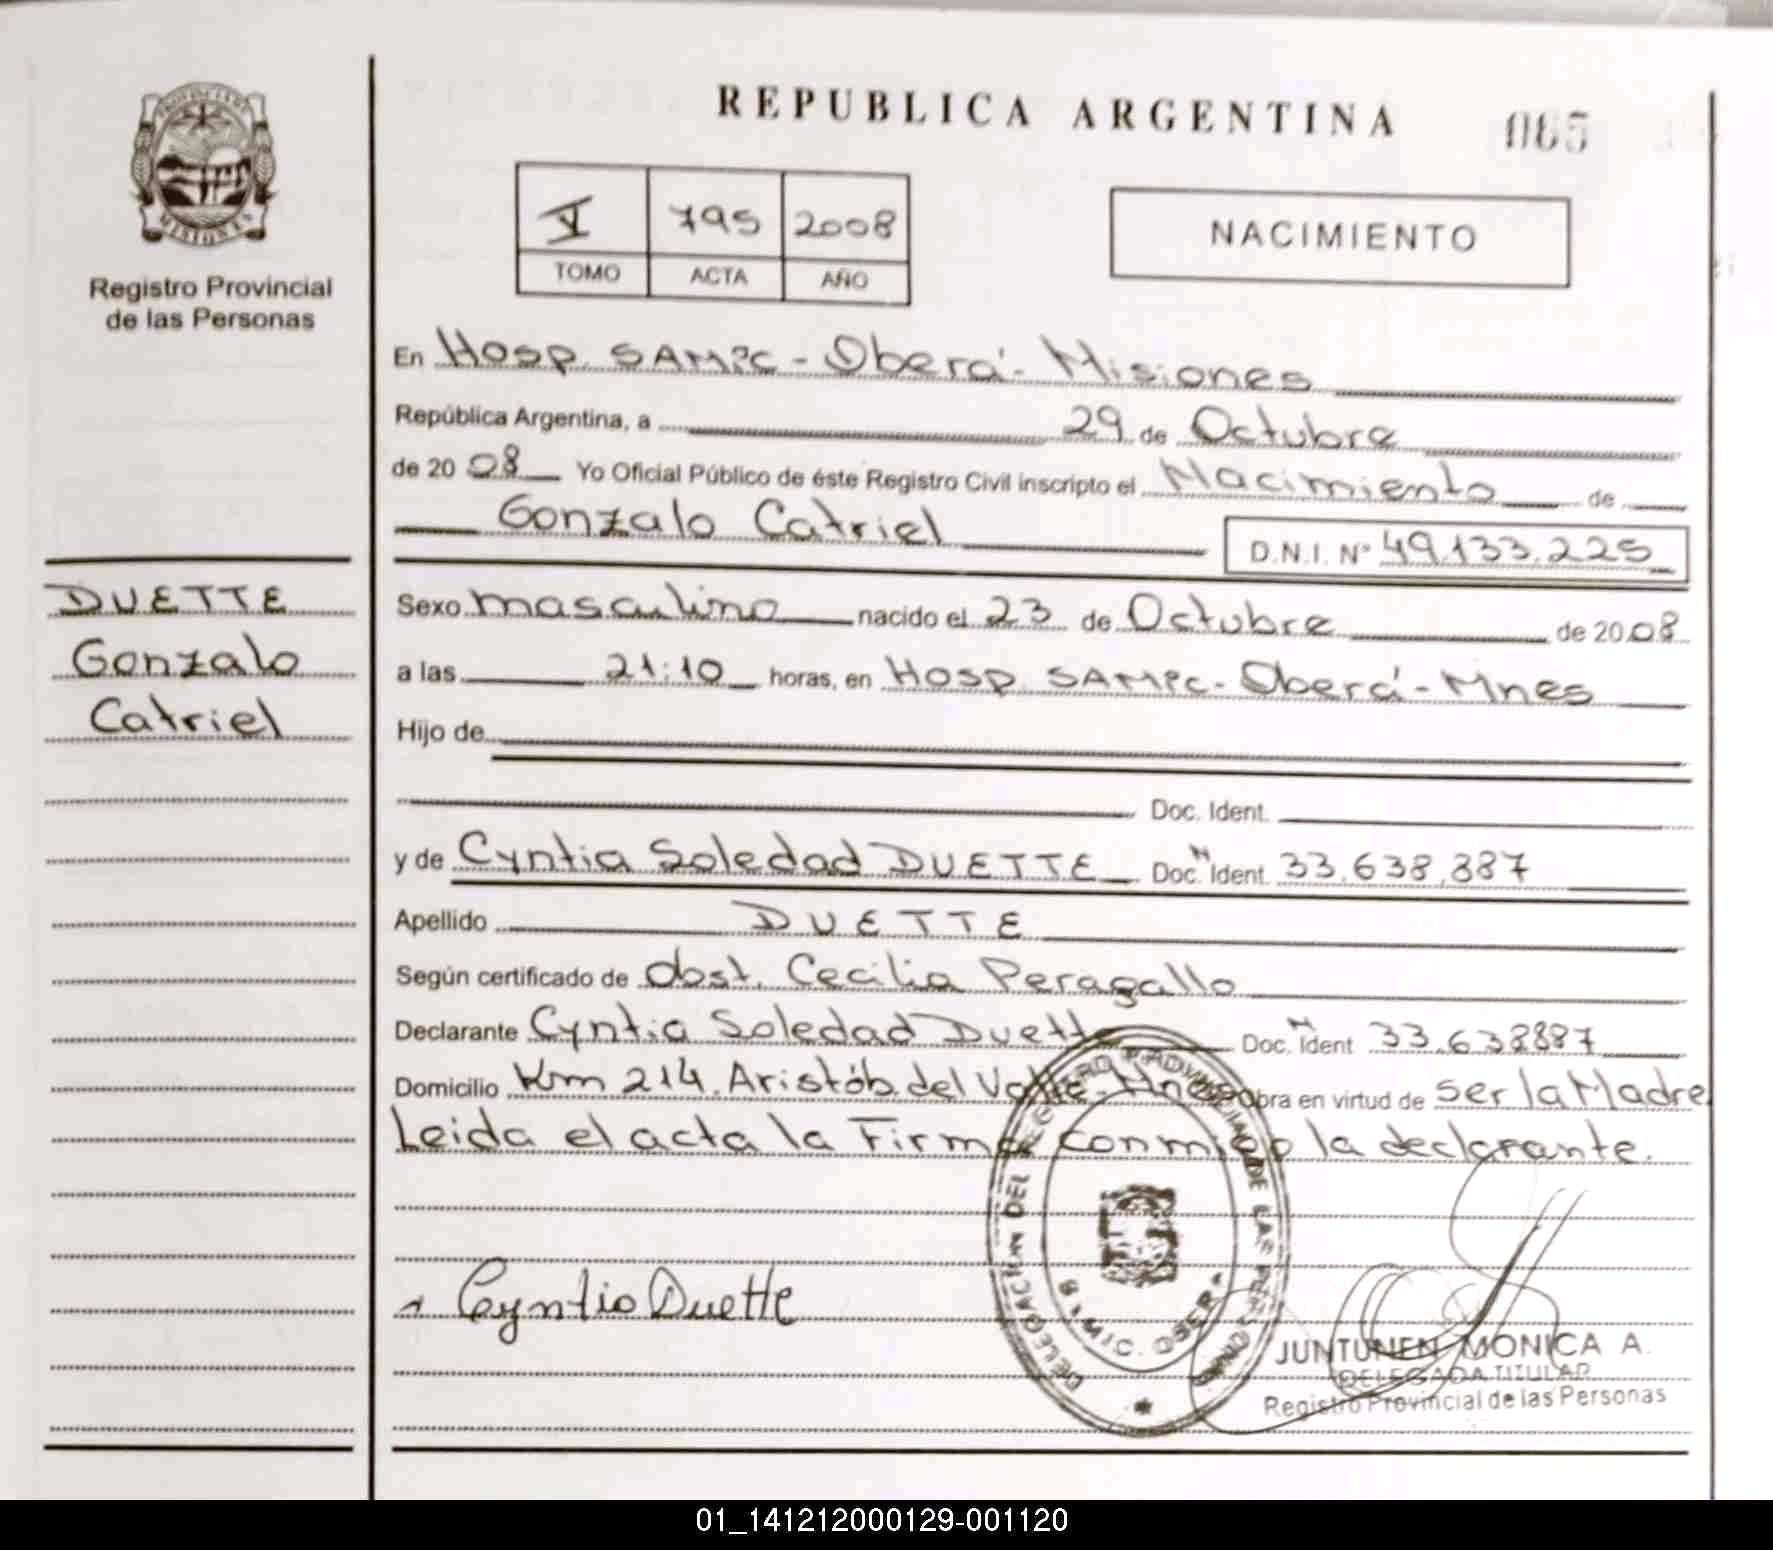 REPUBLICA ARGENTINA
065
PROVINCIA DE
MISIONES
Registro Provincial
de las Personas
V 795 2008
TOMO ACTA AÑO
NACIMIENTO
En Hosp. SAMIC - Oberá - Misiones
República Argentina, a 29 de Octubre
de 20 08 Yo Oficial Público de éste Registro Civil inscripto el Nacimiento de
Gonzalo Catriel
D.N.I. N° 49.133.225
DUETTE
Gonzalo
Catriel
Sexo masculino nacido el 23 de Octubre de 20 08
a las 21:10 horas, en Hosp. SAMIC - Oberá - Mnes
Hijo de
Doc. Ident.
y de Cyntia Soledad DUETTE Doc. N Ident. 33.638.887
Apellido DUETTE
Según certificado de Obst. Cecilia Peragallo
Declarante Cyntia Soledad Duette Doc. N Ident 33.638887
Domicilio Km 214. Aristób. del Valle - Mnes Obra en virtud de ser la Madre
Leida el acta la Firma conmigo la declarante.
DELEGACION DEL REGISTRO PROVINCIAL DE LAS PERSONAS
OBERA
Cyntia Duette
JUNTUNEN MONICA A.
DELEGADA TITULAR
Registro Provincial de las Personas
01_141212000129-001120